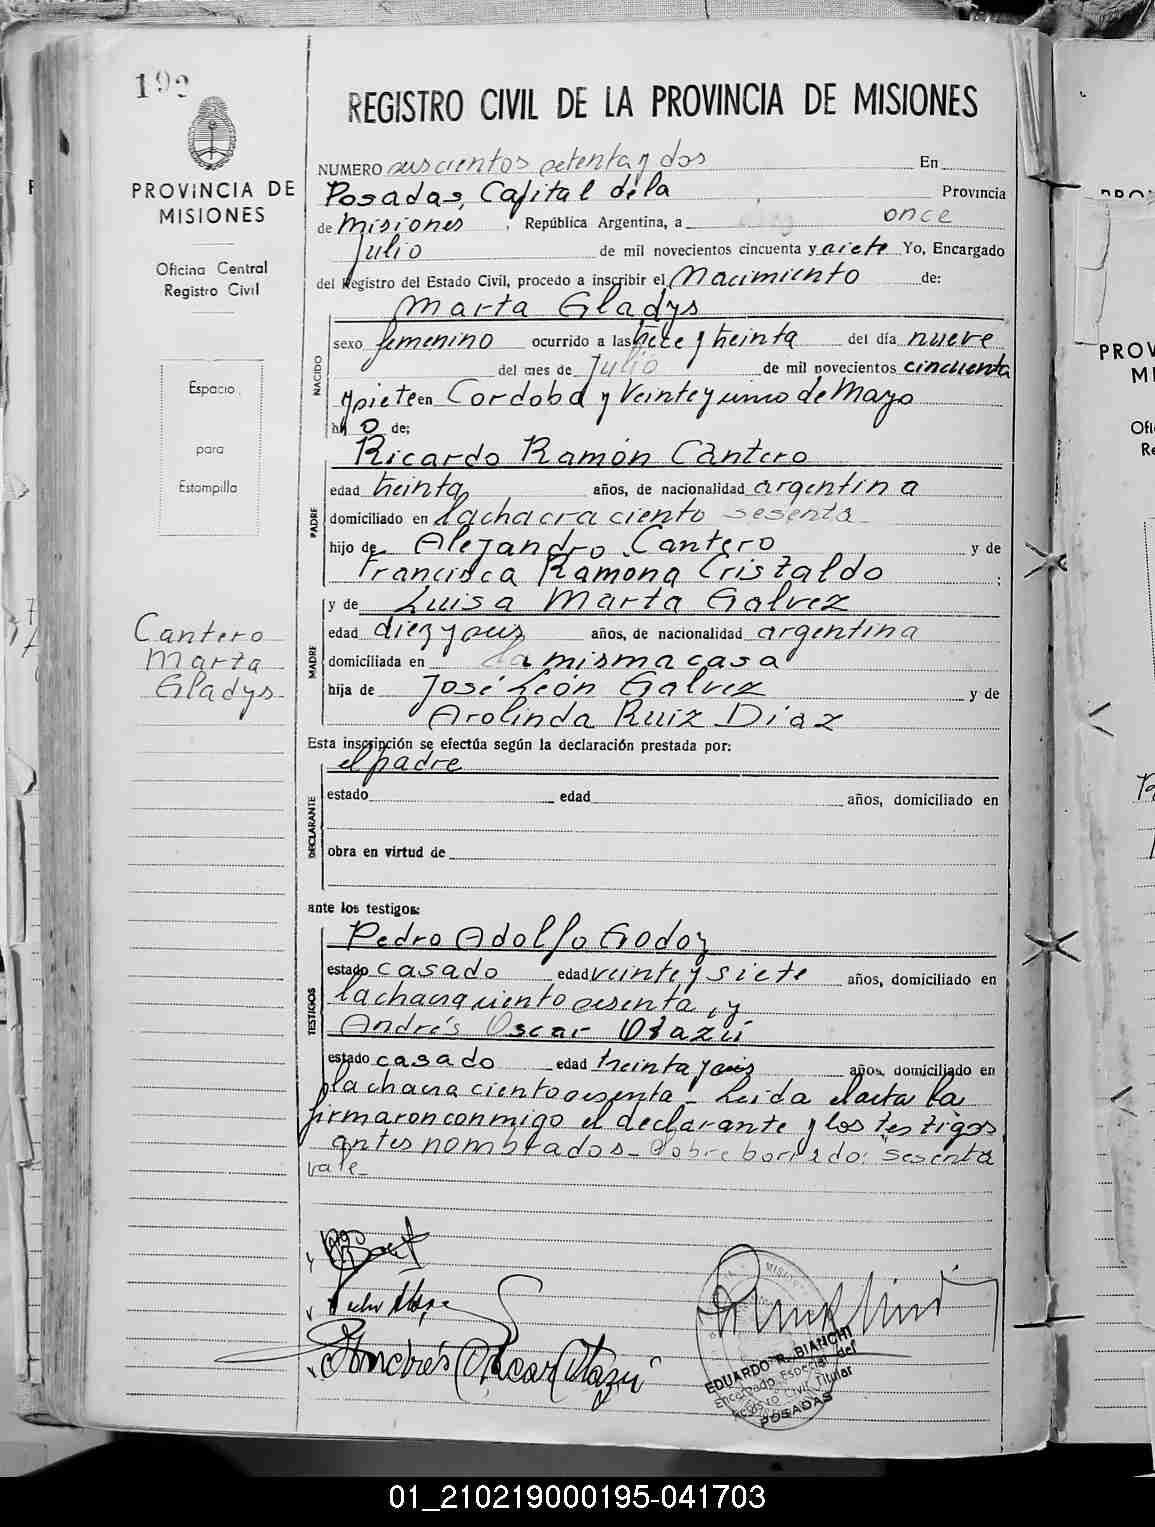 192
PROVINCIA DE
MISIONES
Oficina Central
Registro Civil
Espacio
para
Estampilla
Cantero
Marta
Gladys
REGISTRO CIVIL DE LA PROVINCIA DE MISIONES
NUMERO seiscientos setenta y dos En
Posadas, Capital de la Provincia
de Misiones, República Argentina, a once
Julio de mil novecientos cincuenta y siete Yo, Encargado
del Registro del Estado Civil, procedo a inscribir el Nacimiento de:
Marta Gladys
NACIDO
sexo femenino ocurrido a las trece y treinta del día nueve
del mes de Julio de mil novecientos cincuenta
y siete en Cordoba y Veinte y uno de Mayo
hij o de;
Ricardo Ramón Cantero
PADRE
edad treinta años, de nacionalidad argentina
domiciliado en la chacra ciento sesenta
hijo de Alejandro Cantero y de
Francisca Ramona Cristaldo ;
y de Luisa Marta Galvez
MADRE
edad diez y seis años, de nacionalidad argentina
domiciliada en la misma casa
hija de José León Galvez y de
Arolinda Ruiz Diaz
Esta inscripción se efectúa según la declaración prestada por:
el padre
DECLARANTE
estado edad años, domiciliado en
obra en virtud de
ante los testigos:
Pedro Adolfo Godoy
TESTIGOS
estado casado edad veinte y siete años, domiciliado en
la chacra ciento sesenta, y
Andrés Oscar Olazú
estado casado edad treinta y seis años, domiciliado en
la chacra ciento sesenta - Leida el acta la
firmaron conmigo el declarante y los testigos
antes nombrados - Sobre borrado: sesenta
vale -
Andrés Oscar Olazú
EDUARDO R. BIANCHI
Encargado Especial del
Registro Civil Titular
POSADAS
01_210219000195-041703